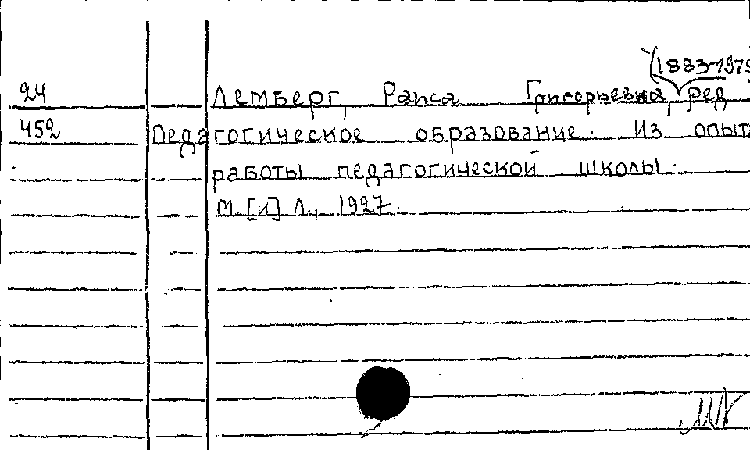 (1883-1975
24 Лемберг, Раиса Григорьевна, ред
452 Педагогическое образование. Из опыт
работы педагогической школы.
М. [и] Л., 1927.